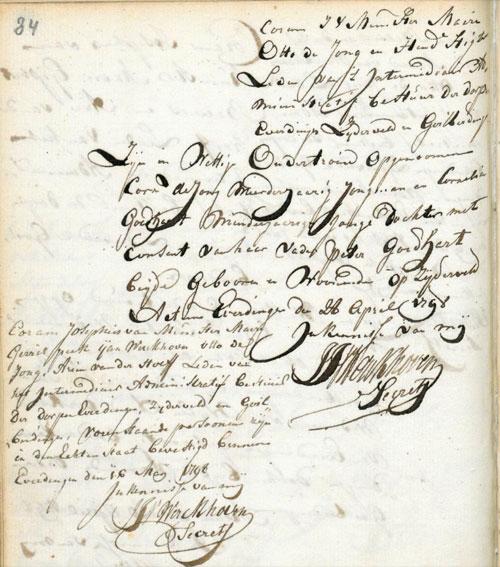 84
Coram J V Munster Maire
Otto de Jong en Hend
Leden van 't Intermediair Ad
ministratif bestuur der dorpe
Everdinge Zijderveld en Goilberdinge
Zijn en Wettige Ondertrouw Opgenoomen
Corn: de Jong Meerderjaarig Jongman en Cornelia
Goedhart Minderjaarige Jonge Dochter met
Consent van haer Vader Peter Goedhart
beijde Gebooren en Woonende Op Zijderveld
Actum Everdinge de 26 April 1798
In kennisse van mij
Werckhoven
Secrets
Coram Josephus van Munster Maire
Gerrit peek Jan Werkhoven Otto de
Jong Arien van der Hoeff Leden van
het Intermediair Administratif bestuur
Der dorpen Everdinge, Zijderveld en Goil
berdinge, Voorstaande persoonen zijn
in den Echten Staat bevestigd binnen
Everdingen den 16 Maij 1798
In kennisse van mij
Werckhoven
Secrets